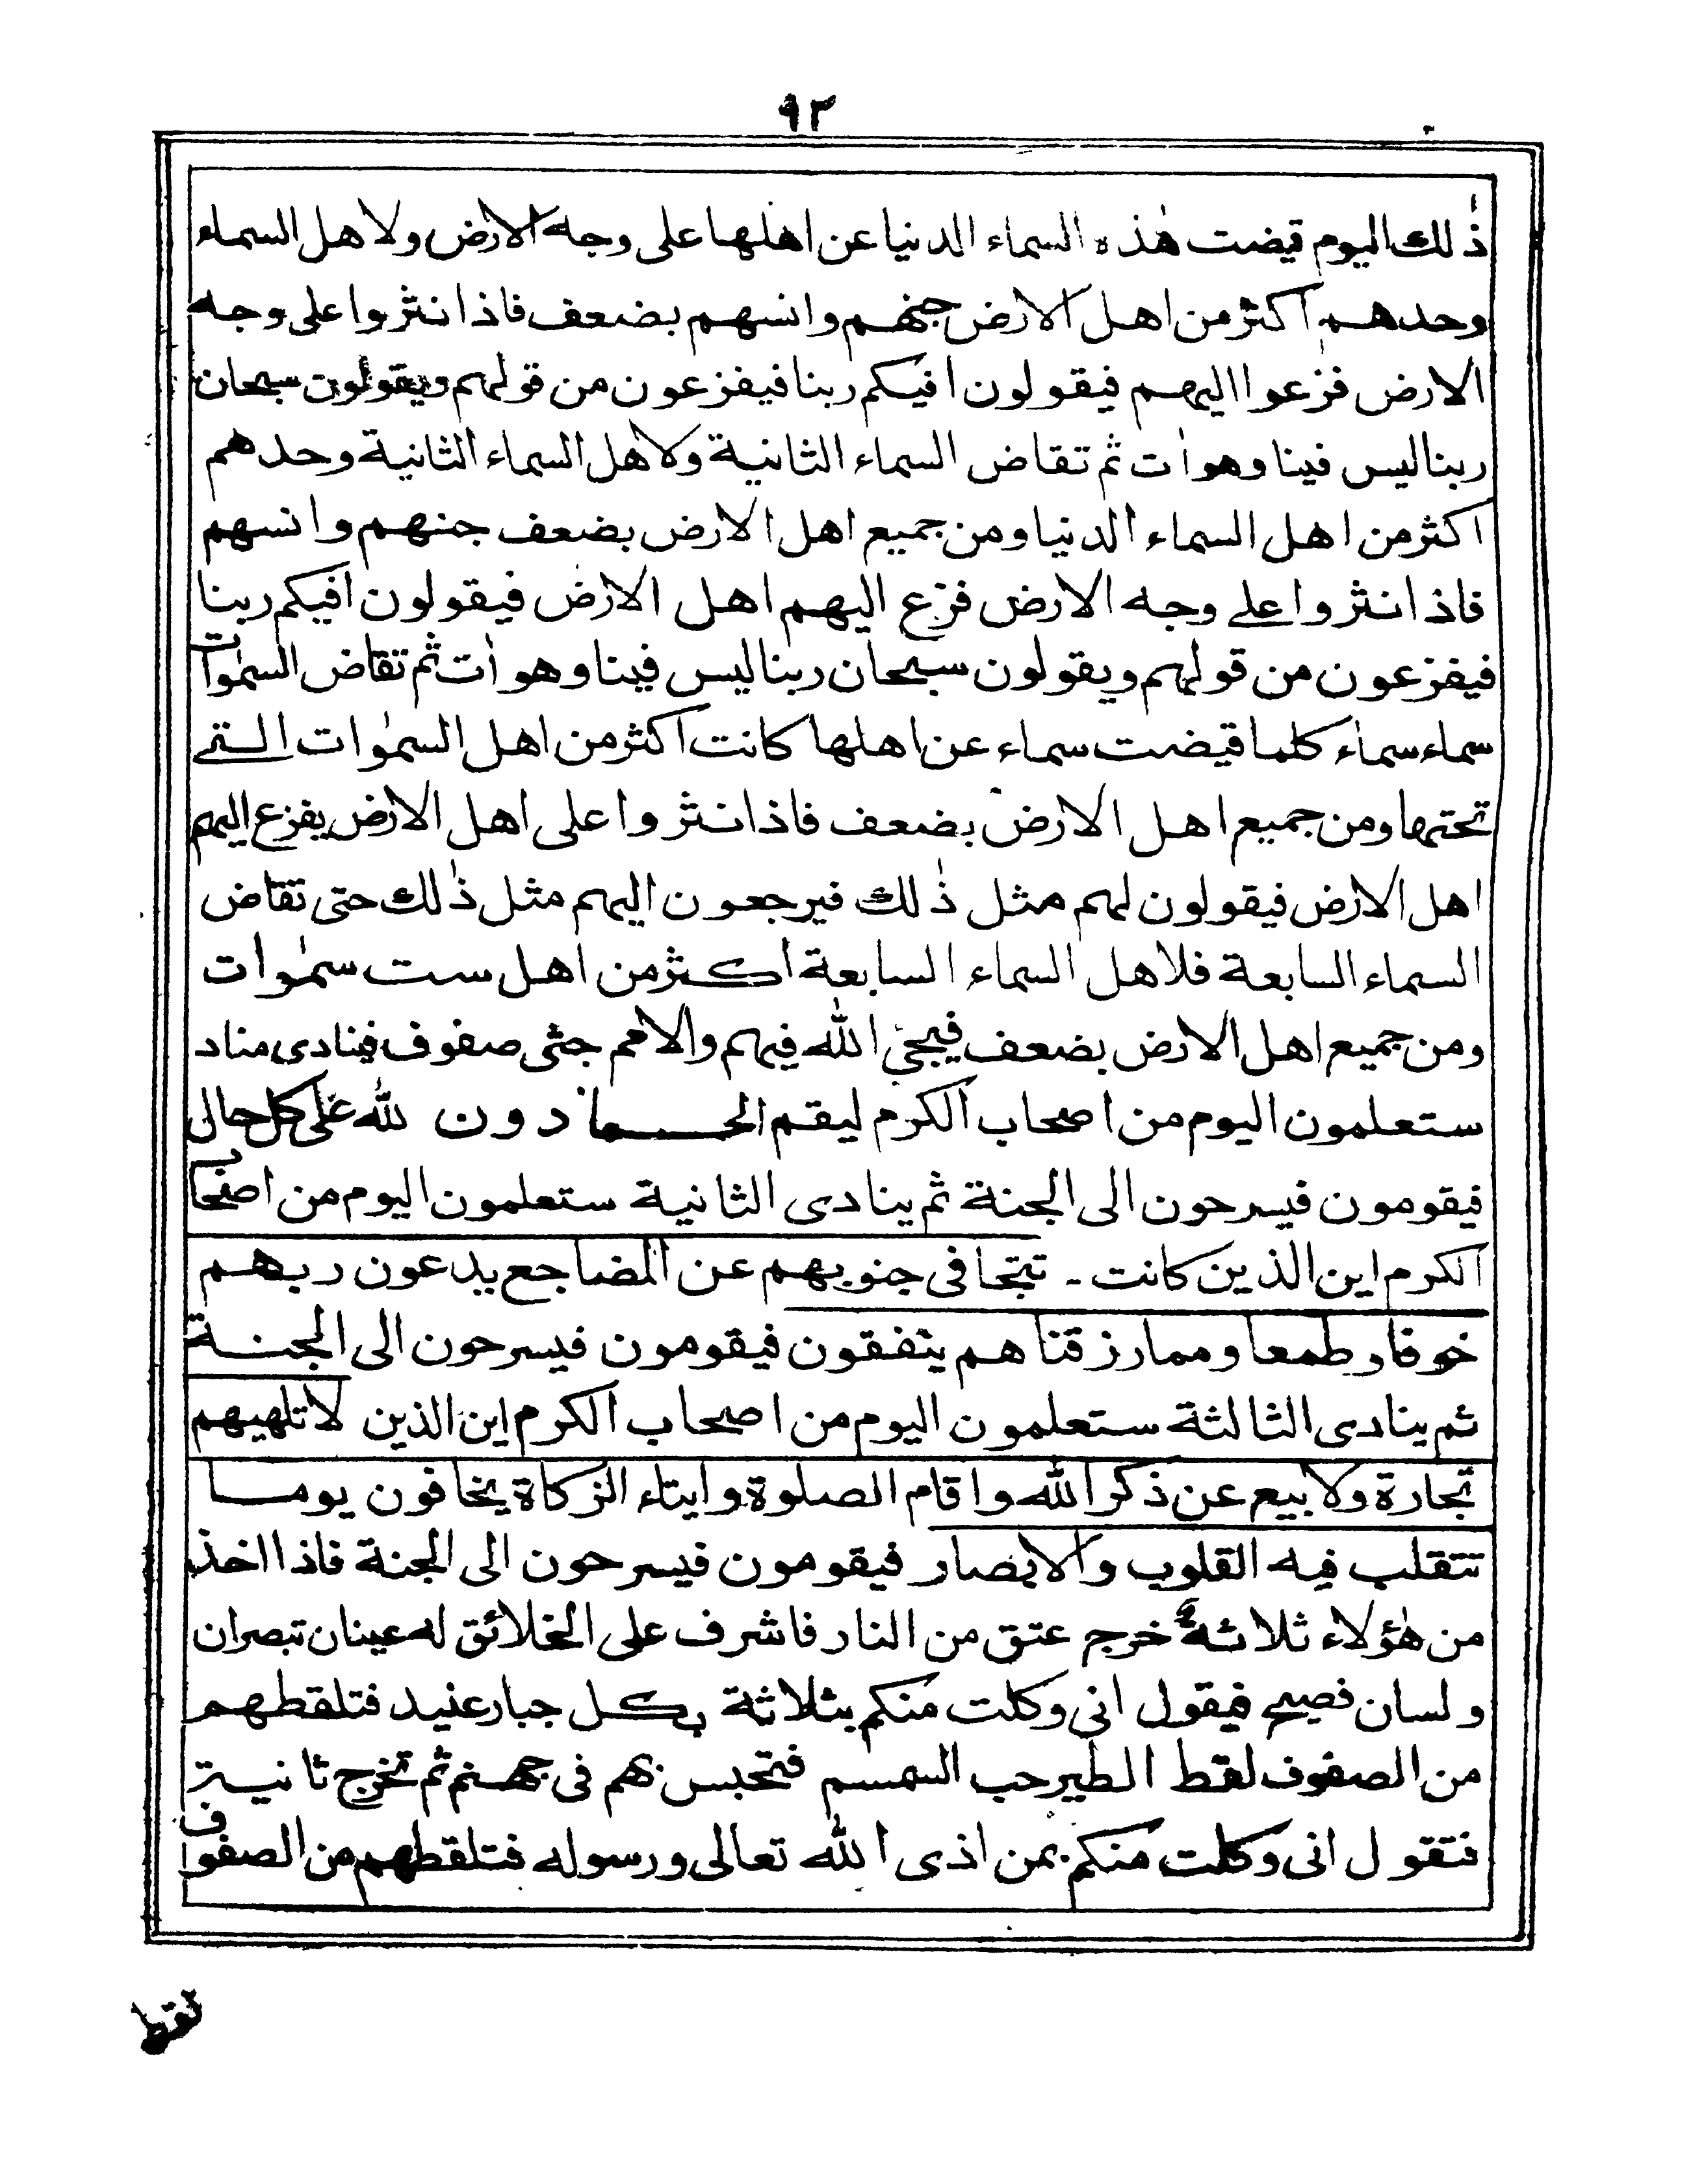 ٩٢
ذٰلك اليوم قيضت هٰذه السماء الدنيا عن اهلها على وجه الارض ولاهل السماء
وحدهم اكثر من اهل الارض جنهم وانسهم بضعف فاذا نثروا على وجه
الارض فزعوا اليهم فيقولون افيكم ربنا فيفزعون من قولهم ويقولون سبحان
ربنا ليس فينا وهو اٰت ثم تقاض السماء الثانية ولاهل السماء الثانية وحدهم
اكثر من اهل السماء الدنيا ومن جميع اهل الارض بضعف جنهم وانسهم
فاذا نثروا على وجه الارض فزع اليهم اهل الارض فيقولون افيكم ربنا
فيفزعون من قولهم ويقولون سبحان ربنا ليس فينا وهو اٰت ثم تقاض السمٰوات
سماء سماء كلما قيضت سماء عن اهلها كانت اكثر من اهل السمٰوات التى
تحتها ومن جميع اهل الارض بضعف فاذا نثروا على اهل الارض يفزع اليهم
اهل الارض فيقولون لهم مثل ذٰلك فيرجعون اليهم مثل ذٰلك حتى تقاض
السماء السابعة فلاهل السماء السابعة اكثر من اهل ست سمٰوات
ومن جميع اهل الارض بضعف فيجئ الله فيهم والامم جثى صفوف فينادى مناد
ستعلمون اليوم من اصحاب الكرم ليقم الحمادون لله على كل حال
فيقومون فيسرحون الى الجنة ثم ينادى الثانية ستعلمون اليوم من اصحاب
الكرم اين الذين كانت - تتجافى جنوبهم عن المضاجع يدعون ربهم
خوفا وطمعا ومما رزقناهم ينفقون فيقومون فيسرحون الى الجنة
ثم ينادى الثالثة ستعلمون اليوم من اصحاب الكرم اين الذين لا تلهيهم
تجارة ولا بيع عن ذكر الله واقام الصلوة وايتاء الزكاة يخافون يوما
تتقلب فيه القلوب والابصار فيقومون فيسرحون الى الجنة فاذا اخذ
من هٰؤلاء ثلاثة خرج عتق من النار فاشرف على الخلائق له عينان تبصران
ولسان فصيح فيقول انى وكلت منكم بثلاثة بكل جبار عنيد فتلقطهم
من الصفوف لقط الطير حب السمسم فتحبس بهم فى جهنم ثم تخرج ثانية
فتقول انى وكلت منكم بمن اذى الله تعالى ورسوله فتلقطهم من الصفوف
لقط